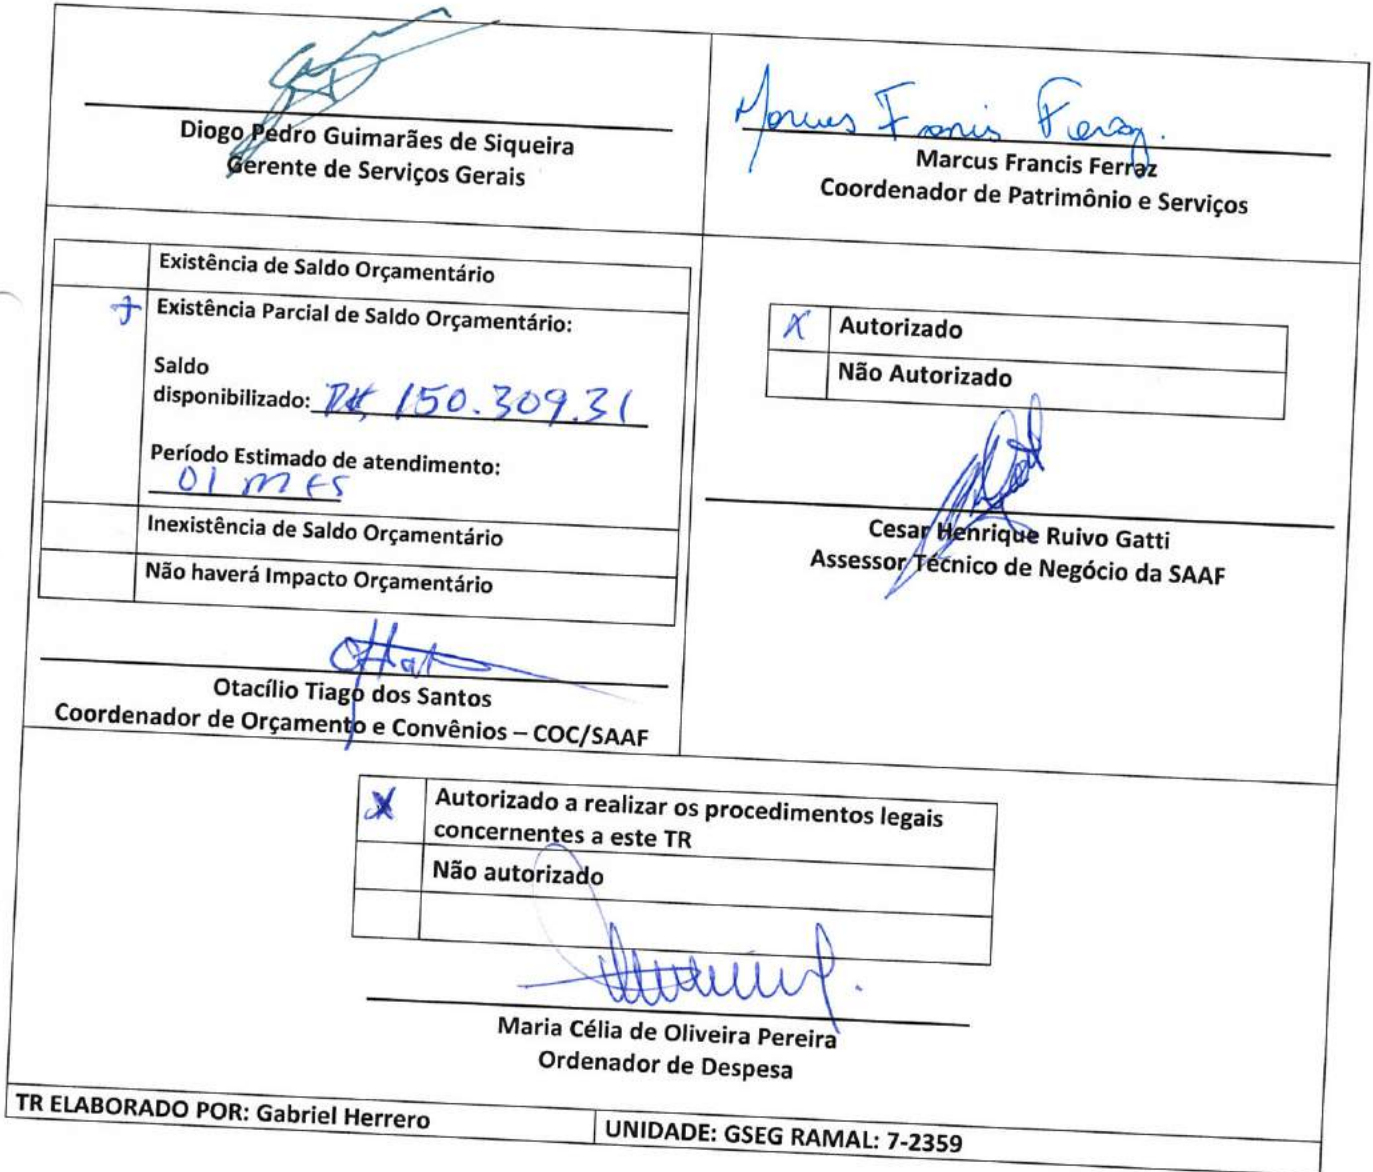 Diogo Pedro Guimarães de Siqueira
Gerente de Serviços Gerais
Marcus Francis Ferraz.
Marcus Francis Ferraz
Coordenador de Patrimônio e Serviços
Existência de Saldo Orçamentário
Existência Parcial de Saldo Orçamentário:
Saldo
disponibilizado: R$ 150.309.31
Período Estimado de atendimento:
01 MES
Inexistência de Saldo Orçamentário
Não haverá Impacto Orçamentário
Otacílio Tiago dos Santos
Coordenador de Orçamento e Convênios – COC/SAAF
X Autorizado
Não Autorizado
Cesar Henrique Ruivo Gatti
Assessor Técnico de Negócio da SAAF
X Autorizado a realizar os procedimentos legais
concernentes a este TR
Não autorizado
Maria Célia de Oliveira Pereira
Ordenador de Despesa
TR ELABORADO POR: Gabriel Herrero
UNIDADE: GSEG RAMAL: 7-2359